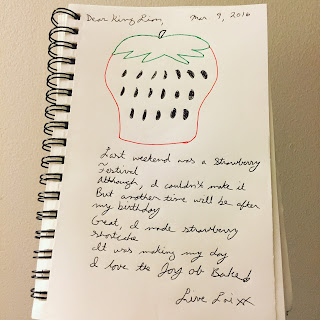 Dear King Lion, Mar 9, 2016
Last weekend was a Strawberry
Festival
Although, I couldn't make it
But another time will be after
my birthday
Great, I made strawberry
shortcake
It was making my day
I love the Joy of Baked
Love Loi xx